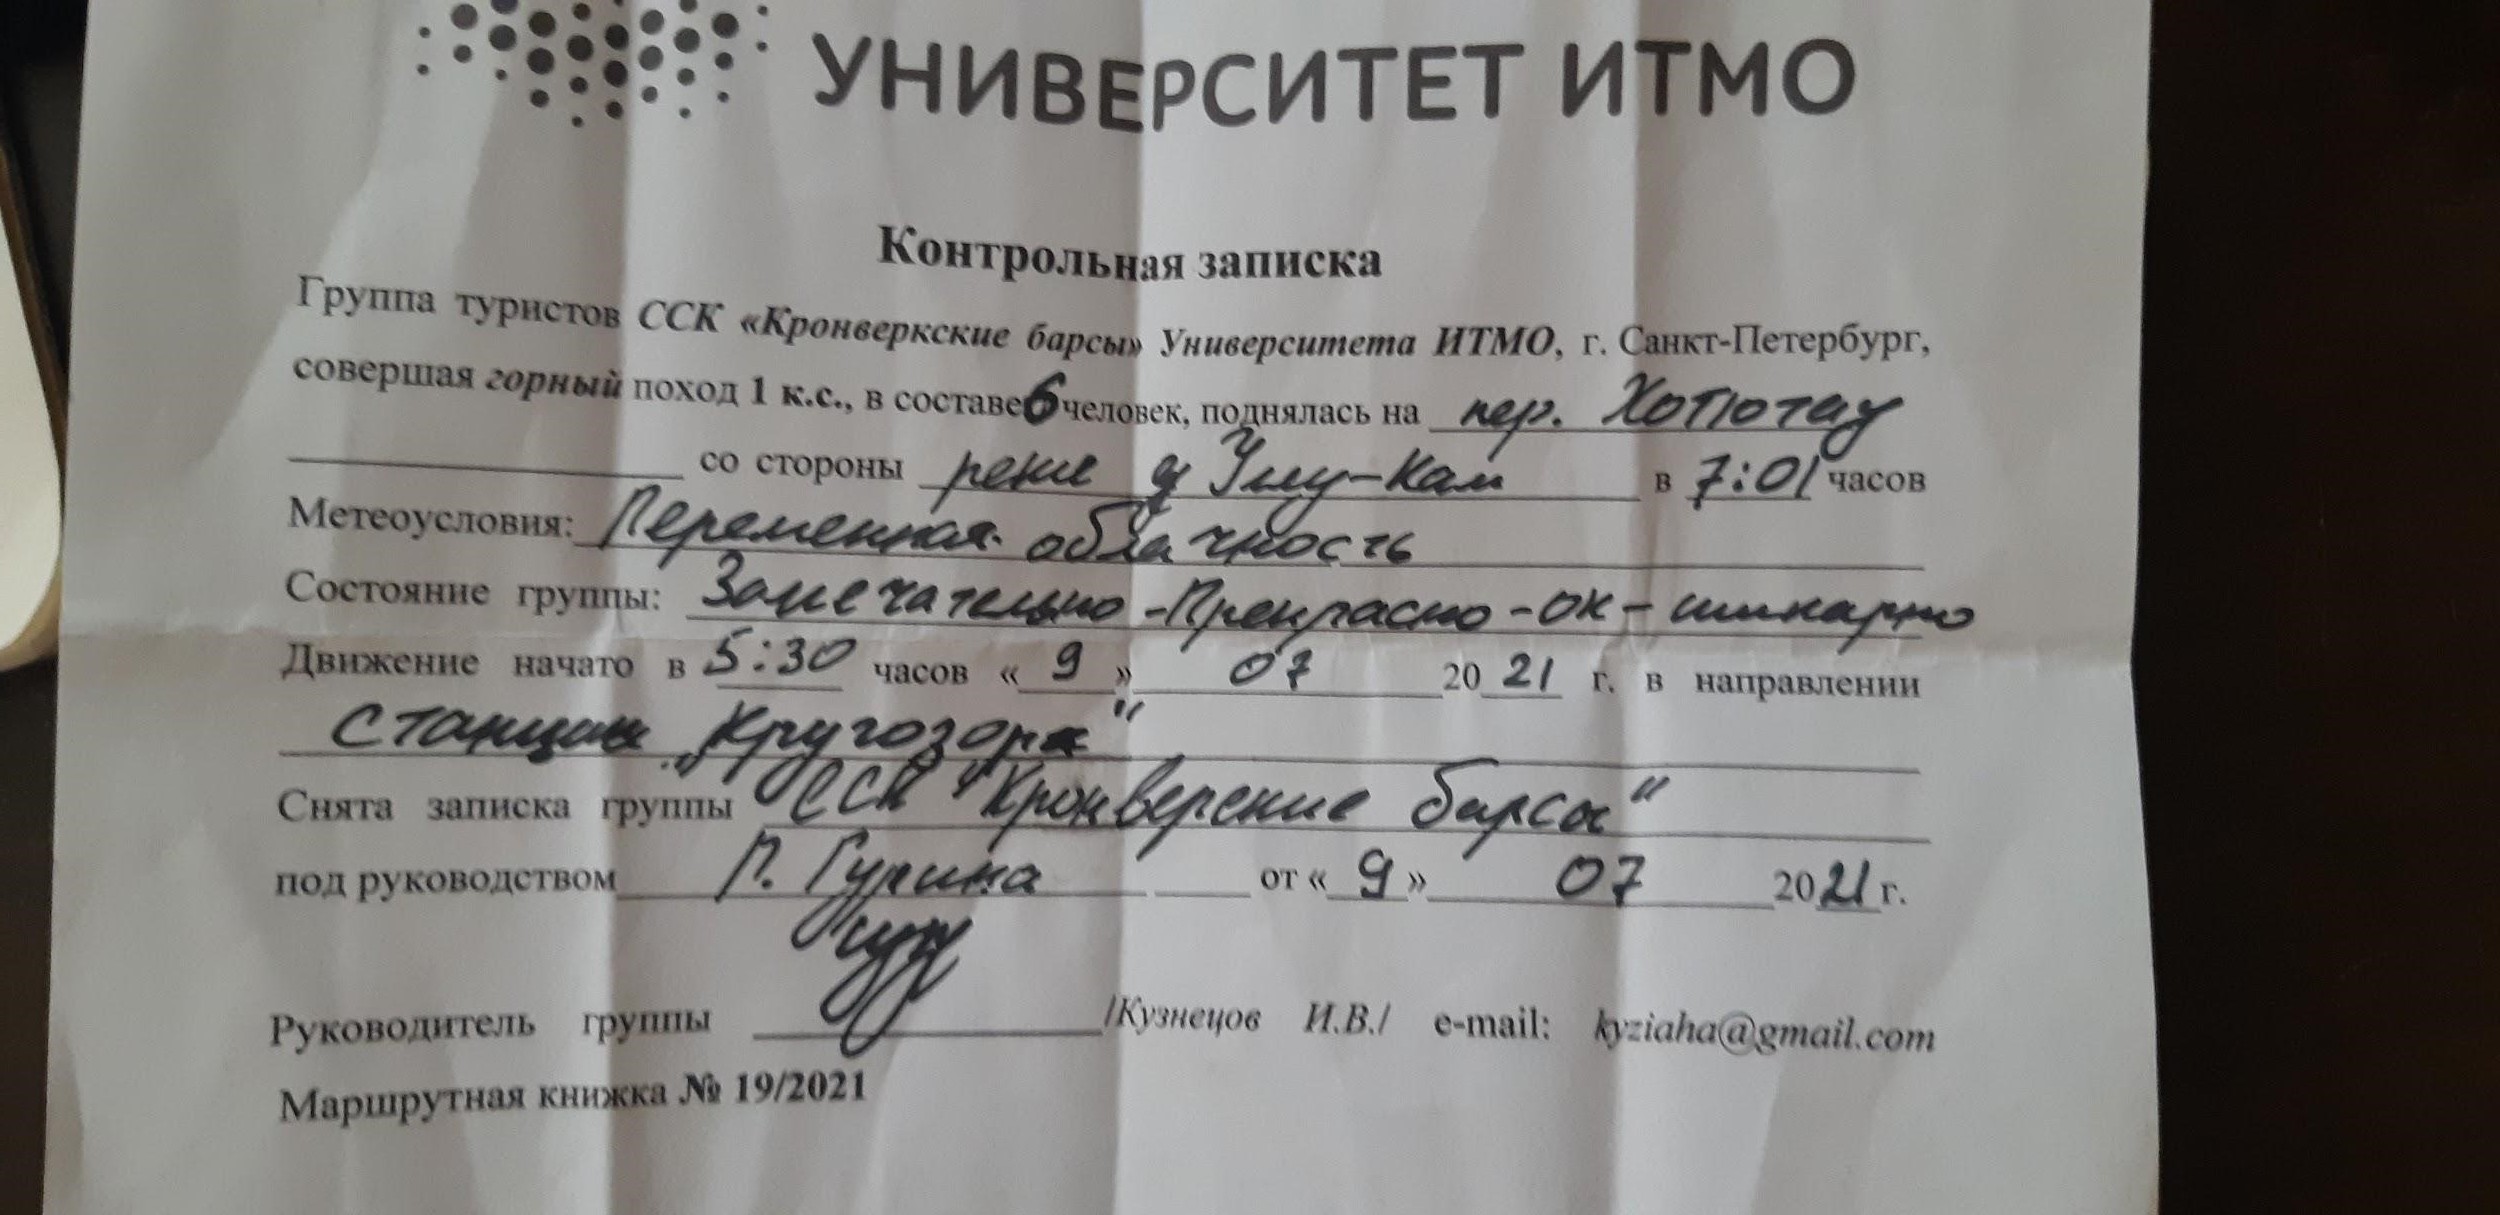 УНИВЕРСИТЕТ ИТМО
Контрольная записка
Группа туристов ССК «Кронверкские барсы» Университета ИТМО, г. Санкт-Петербург,
совершая горный поход 1 к.с., в составе 6 человек, поднялась на пер. Хотютау
со стороны реки Уллу-Кам в 7:01 часов
Метеоусловия: Переменная облачность
Состояние группы: Замечательно - Прекрасно - ок - шикарно
Движение начато в 5:30 часов «9» 07 2021 г. в направлении
станции „Кругозор"
Снята записка группы ССК "Кронверские барсы"
под руководством П. Гурина от «9» 07 2021 г.
Руководитель группы /Кузнецов И.В./ e-mail: kyziaha@gmail.com
Маршрутная книжка № 19/2021